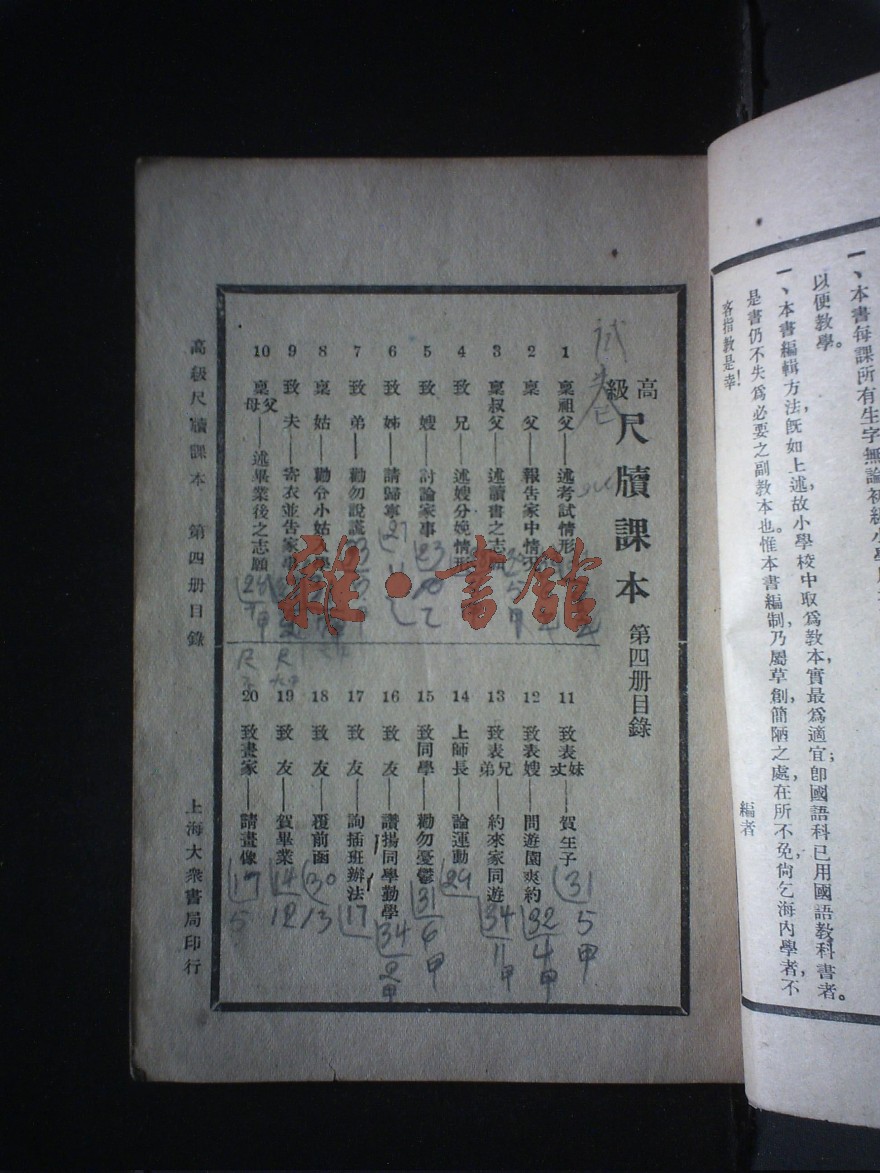 一、本書每課所有生字無論初級小學
以便教學。
一、本書編輯方法，旣如上述，故小學校中取爲教本，實最爲適宜；卽國語科已用國語教科書者，
是書仍不失爲必要之副教本也。惟本書編制，乃屬草創，簡陋之處，在所不免，尙乞海內學者，不
吝指教是幸！
編者
高級尺牘課本 第四册目錄
試卷
1 稟祖父——述考試情形
2 稟 父——報告家中情
3 稟叔父——述讀書之志願
4 致 兄——述嫂分娩情形
5 致 嫂——討論家事
6 致 姊——請歸寧
7 致 弟——勸勿說謊
8 稟 姑——勸令小姑 學
9 致 夫——寄衣並告家事
10 稟父母——述畢業後之志願
11 致表妹丈——賀生子 31 5 甲
12 致表嫂——問遊園爽約 32 4 甲
13 致表兄弟——約來家同遊 34 11 甲
14 上師長——論運動 29
15 致同學——勸勿憂鬱 31 6 甲
16 致 友——讚揚同學勤學 34 2 甲
17 致 友——詢插班辦法 17
18 致 友——覆前函 30 13
19 致 友——賀畢業 14 12
20 致畫家——請畫像 17 5
高級尺牘課本 第四册目錄
上海大衆書局印行
雜·書館